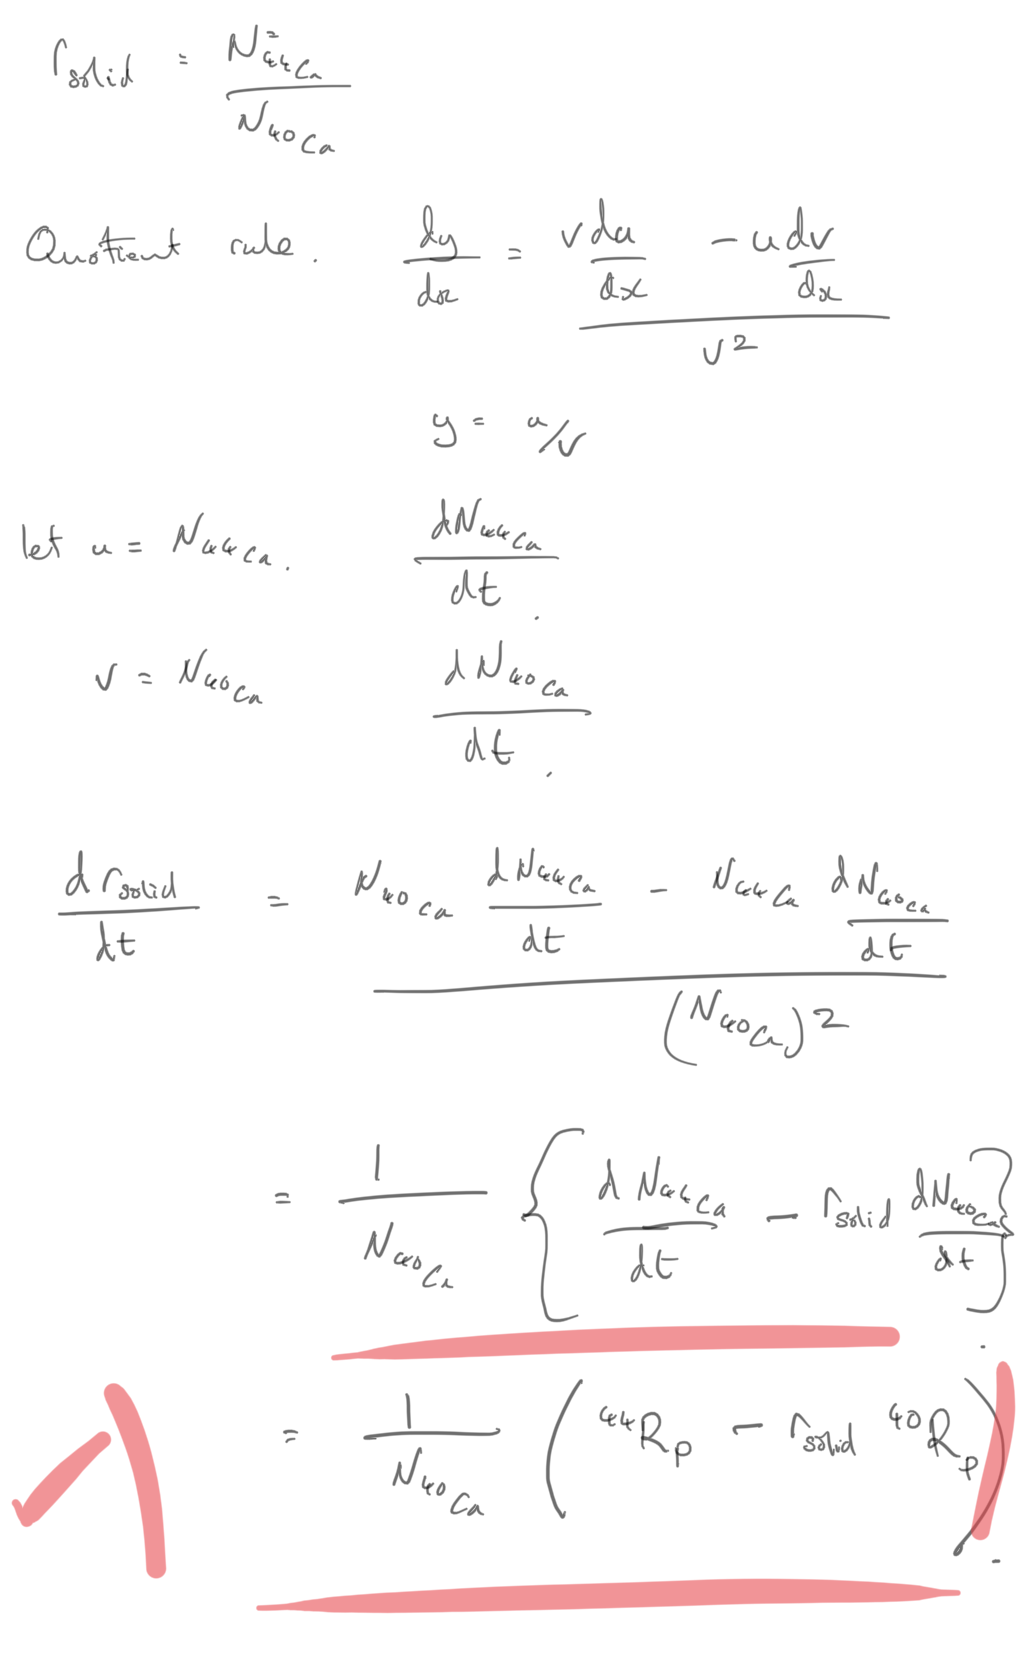 r_solid = N_44Ca / N_40Ca
Quotient rule. dy/dx = (v du/dx - u dv/dx) / v²
y = u/v
let u = N_44Ca. dN_44Ca/dt.
v = N_40Ca dN_40Ca/dt.
dr_solid/dt = (N_40Ca dN_44Ca/dt - N_44Ca dN_40Ca/dt) / (N_40Ca)²
= 1/N_40Ca { dN_44Ca/dt - r_solid dN_40Ca/dt }.
= 1/N_40Ca ( ⁴⁴R_p - r_solid ⁴⁰R_p ).